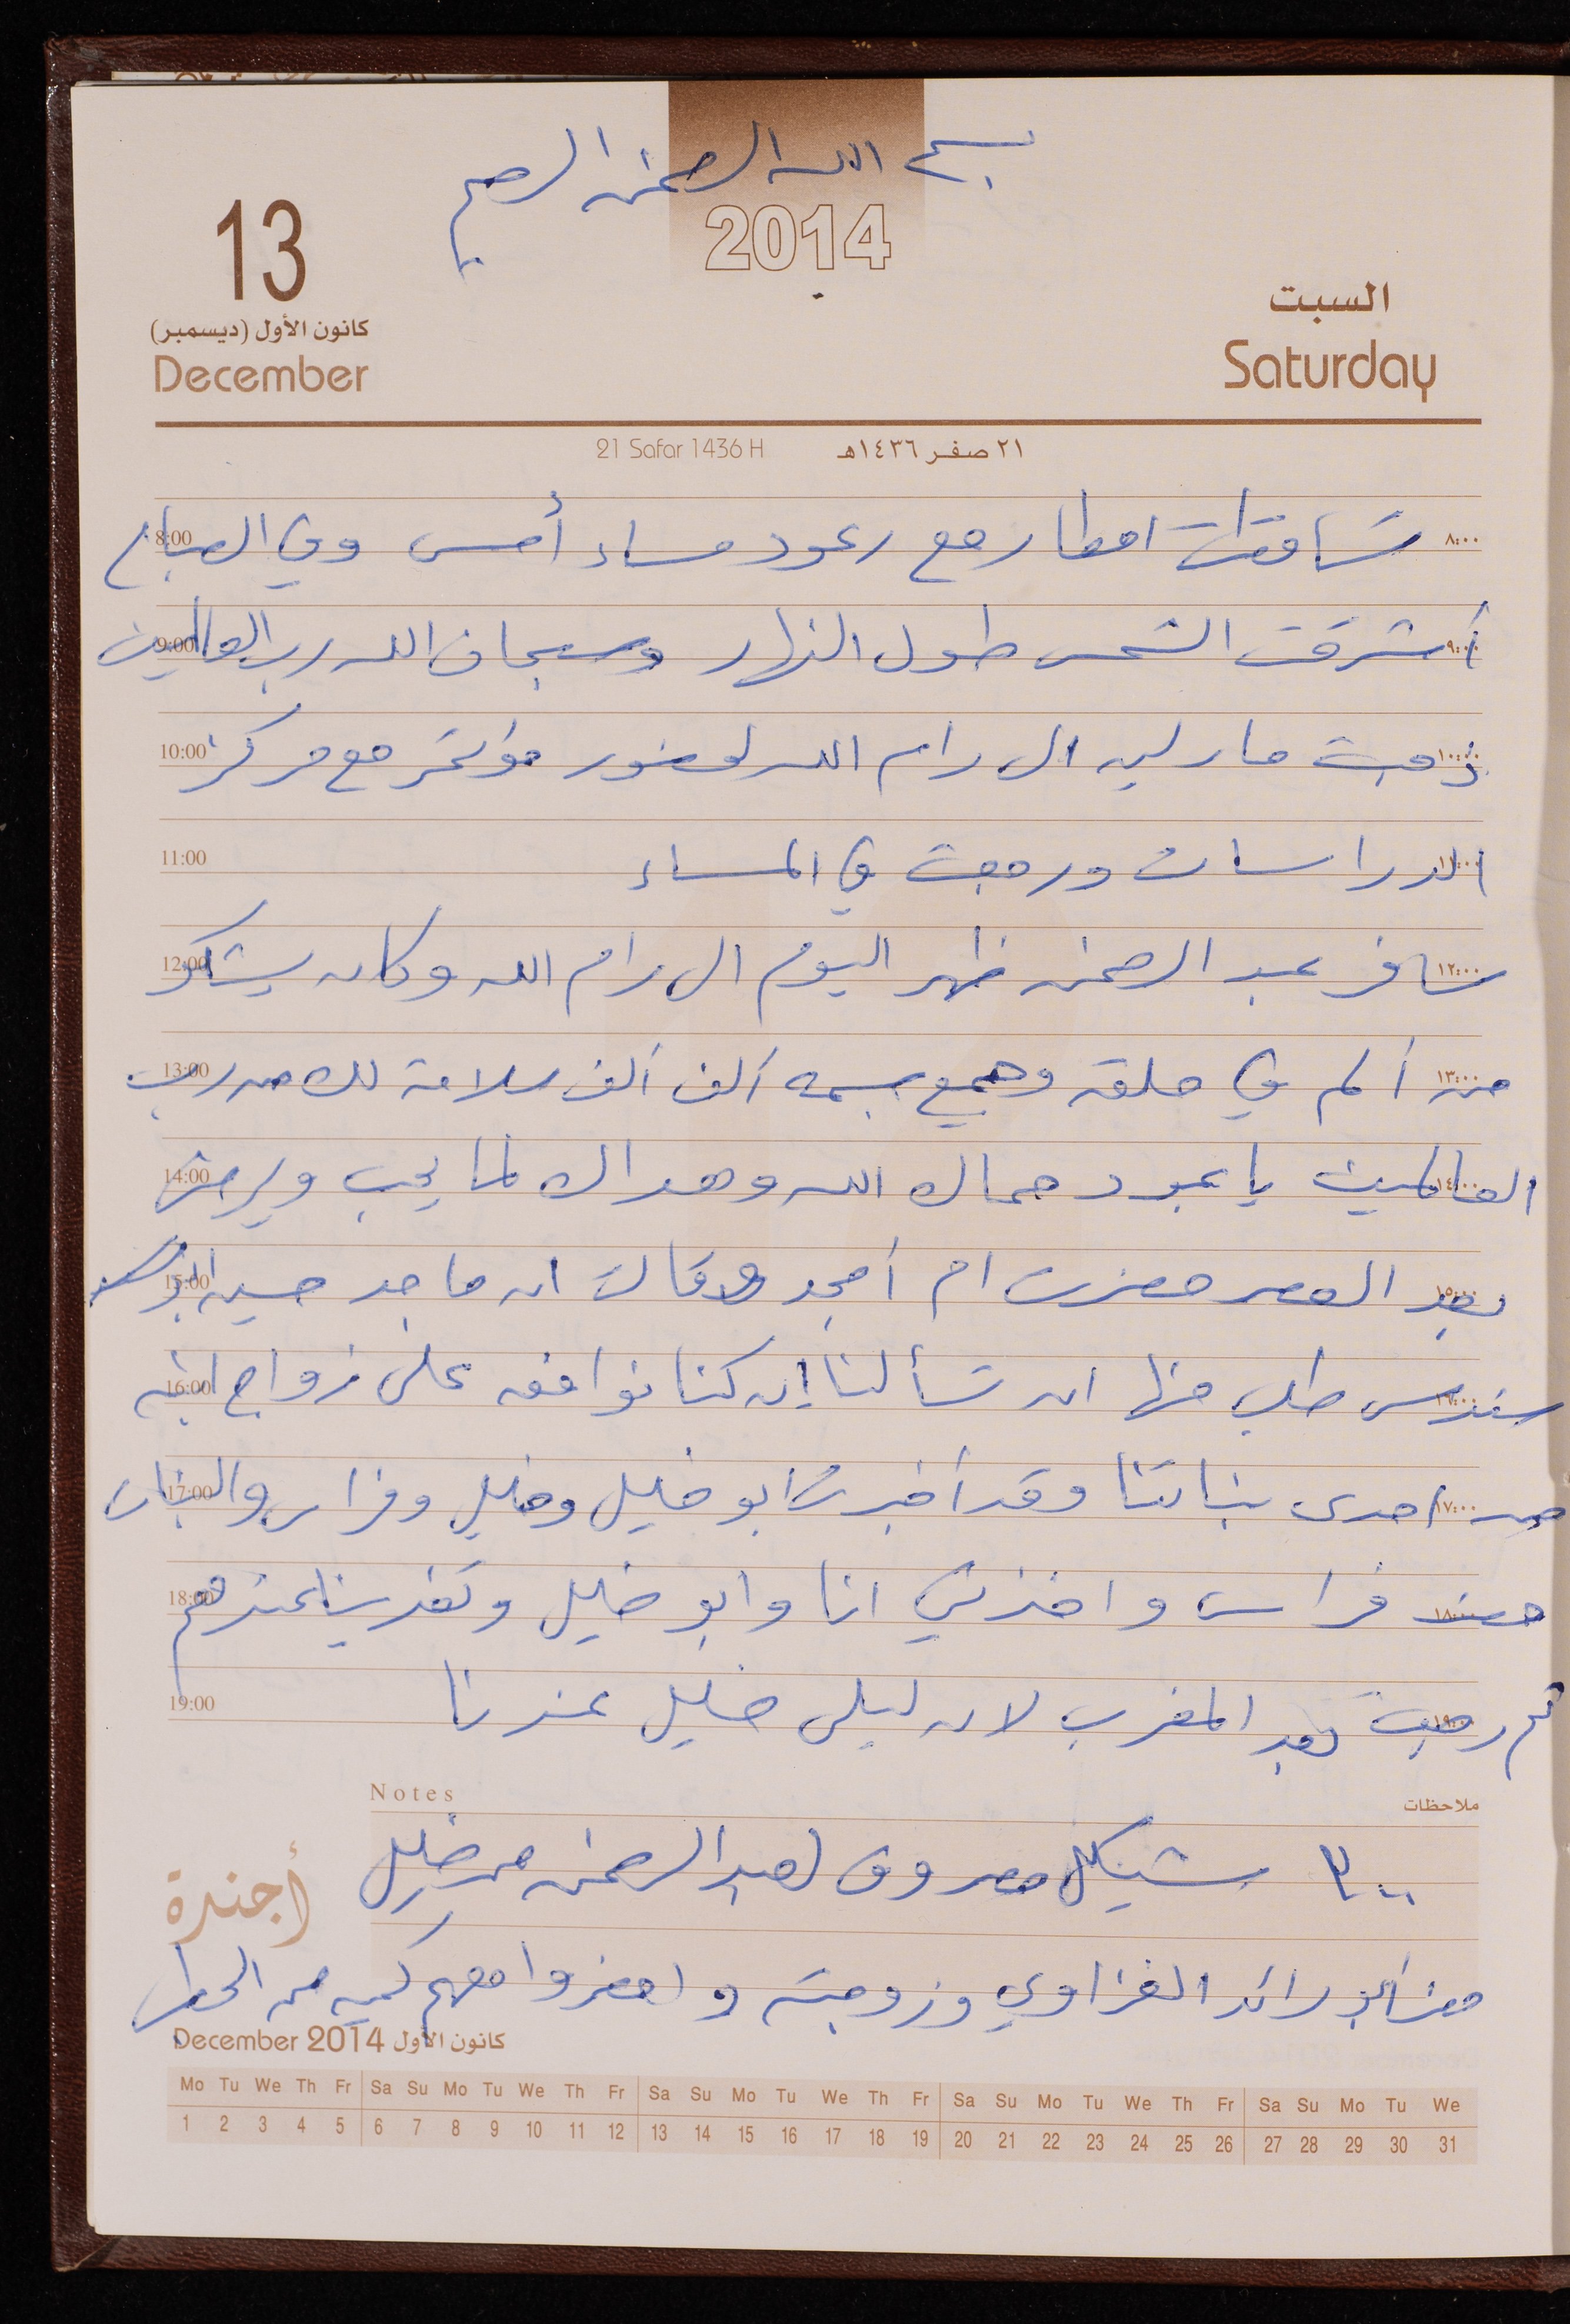 بسم الله الرحمن الرحيم
2014
13
كانون الأول (ديسمبر)
December
السبت
Saturday
21 Safar 1436 H ٢١ صفر ١٤٣٦هـ
8:00 تساقطت امطار مع رعود مساء أمس وفي الصباح ٨:٠٠
9:00 أشرقت الشمس طول النهار وسبحان الله رب العالمين ٩:٠٠
10:00 ذهبت مارلين الى رام الله لحضور مؤتمر مع مركز ١٠:٠٠
11:00 الدراسات ورجعت في المساء ١١:٠٠
12:00 سافر عبد الرحمن ظهر اليوم الى رام الله وكان يشكو ١٢:٠٠
13:00 من ألم في حلقه وجميع جسمه ألف ألف سلامة لك من رب ١٣:٠٠
14:00 العالمين يا عبود حماك الله وهداك لما يحب ويرضى ١٤:٠٠
15:00 بعد العصر حضرت ام أمجد وقالت ان ماجد حسين ١٥:٠٠
16:00 سندس طلب منها ان تسألنا إن كنا نوافق على زواج ابنه ١٦:٠٠
17:00 من احدى بناتنا وقد أخبرت ابو خليل وخليل وفراس والبنات ١٧:٠٠
18:00 حضر فراس واخذني انا وابو خليل وتغدينا عندهم ١٨:٠٠
19:00 ثم رجعت بعد المغرب لان ليلى خليل عندنا ١٩:٠٠
Notes ملاحظات
٣٠٠ شيكل مصروف لعبد الرحمن من خليل
أجندة
حضر ابو رائد الغزاوي وزوجته واحضروا معهم كمية من الحطب
December 2014 كانون الأول
Mo Tu We Th Fr Sa Su Mo Tu We Th Fr Sa Su Mo Tu We Th Fr Sa Su Mo Tu We Th Fr Sa Su Mo Tu We
1 2 3 4 5 6 7 8 9 10 11 12 13 14 15 16 17 18 19 20 21 22 23 24 25 26 27 28 29 30 31